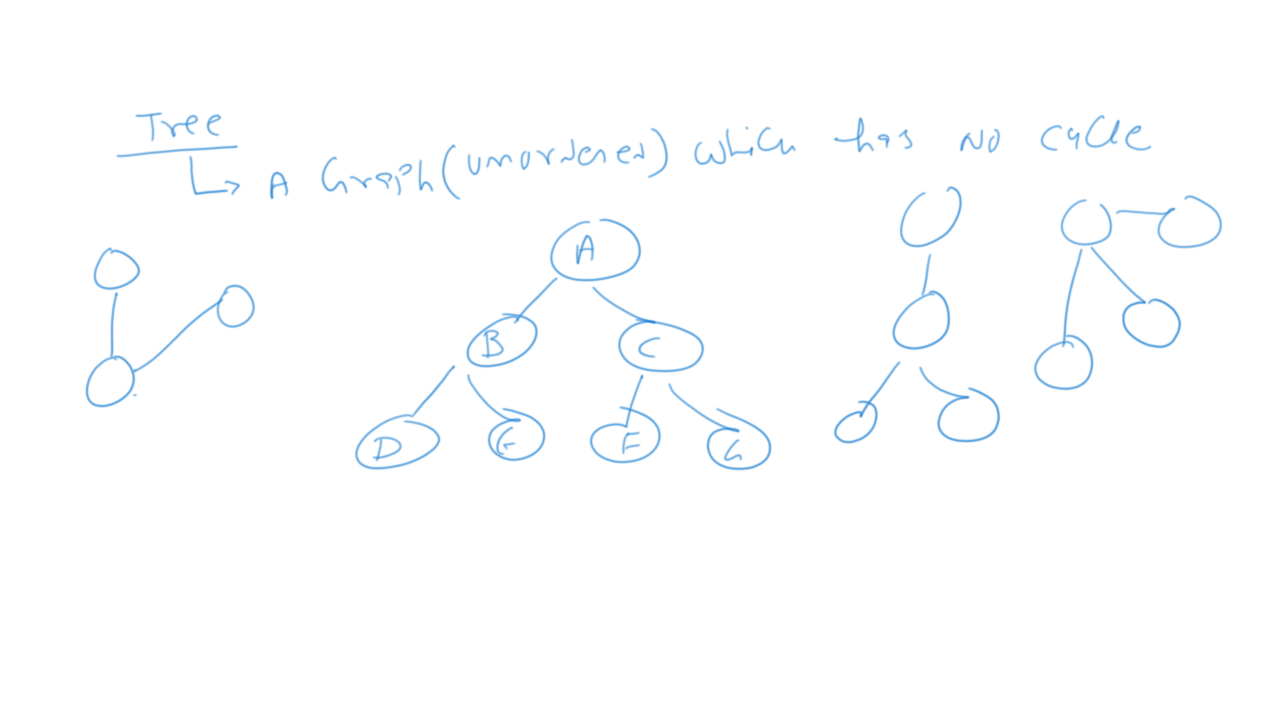 Tree
A Graph (unordered) which has no cycle
A
B C
D E F G